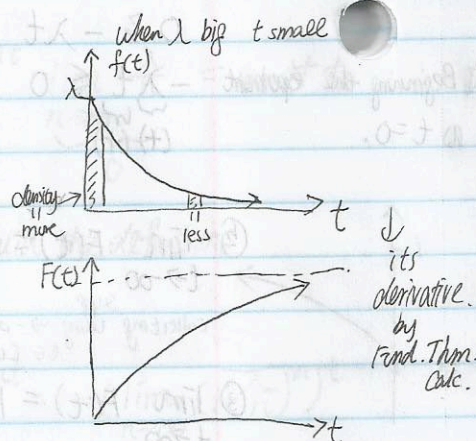 when λ big t small
f(t)
λ
density
=
more
=
less
t
F(t)
t
↓
its
derivative.
by
Fund. Thm.
Calc.